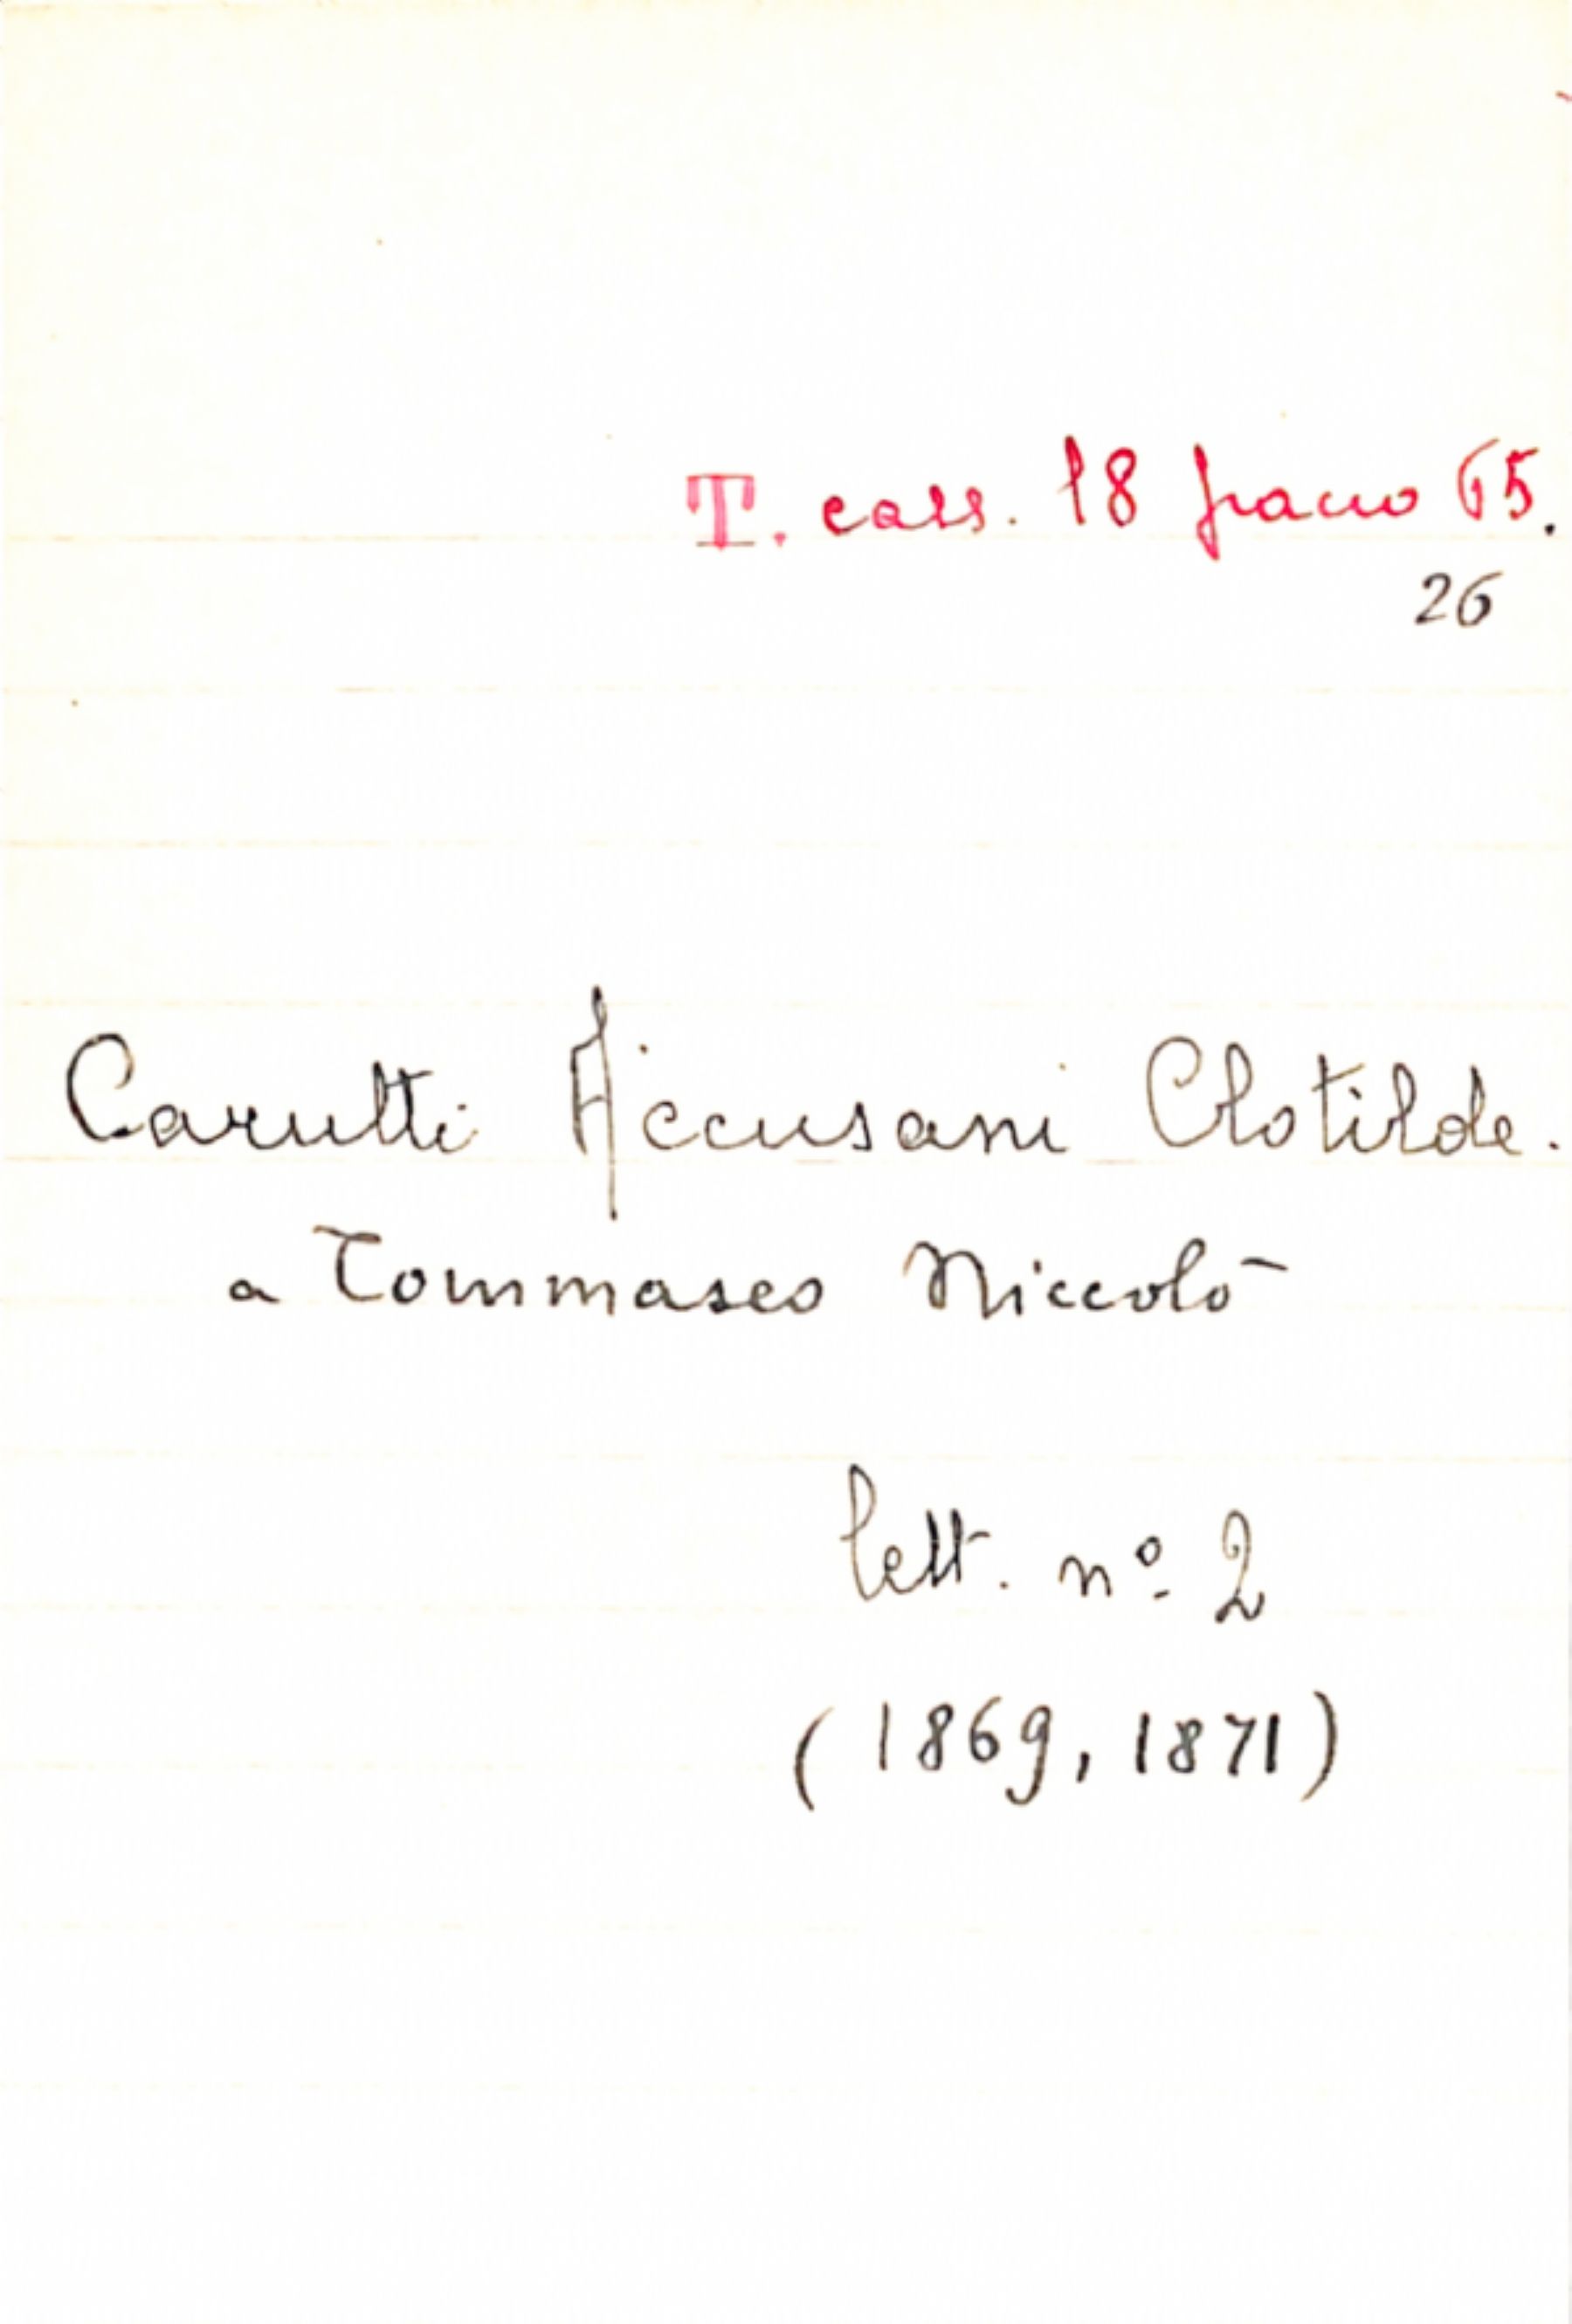 T. cass. 18 pacco 65.
26
Carutti Accusani Clotilde.
a Tommaseo Niccolò
lett. nº 2
(1869, 1871)